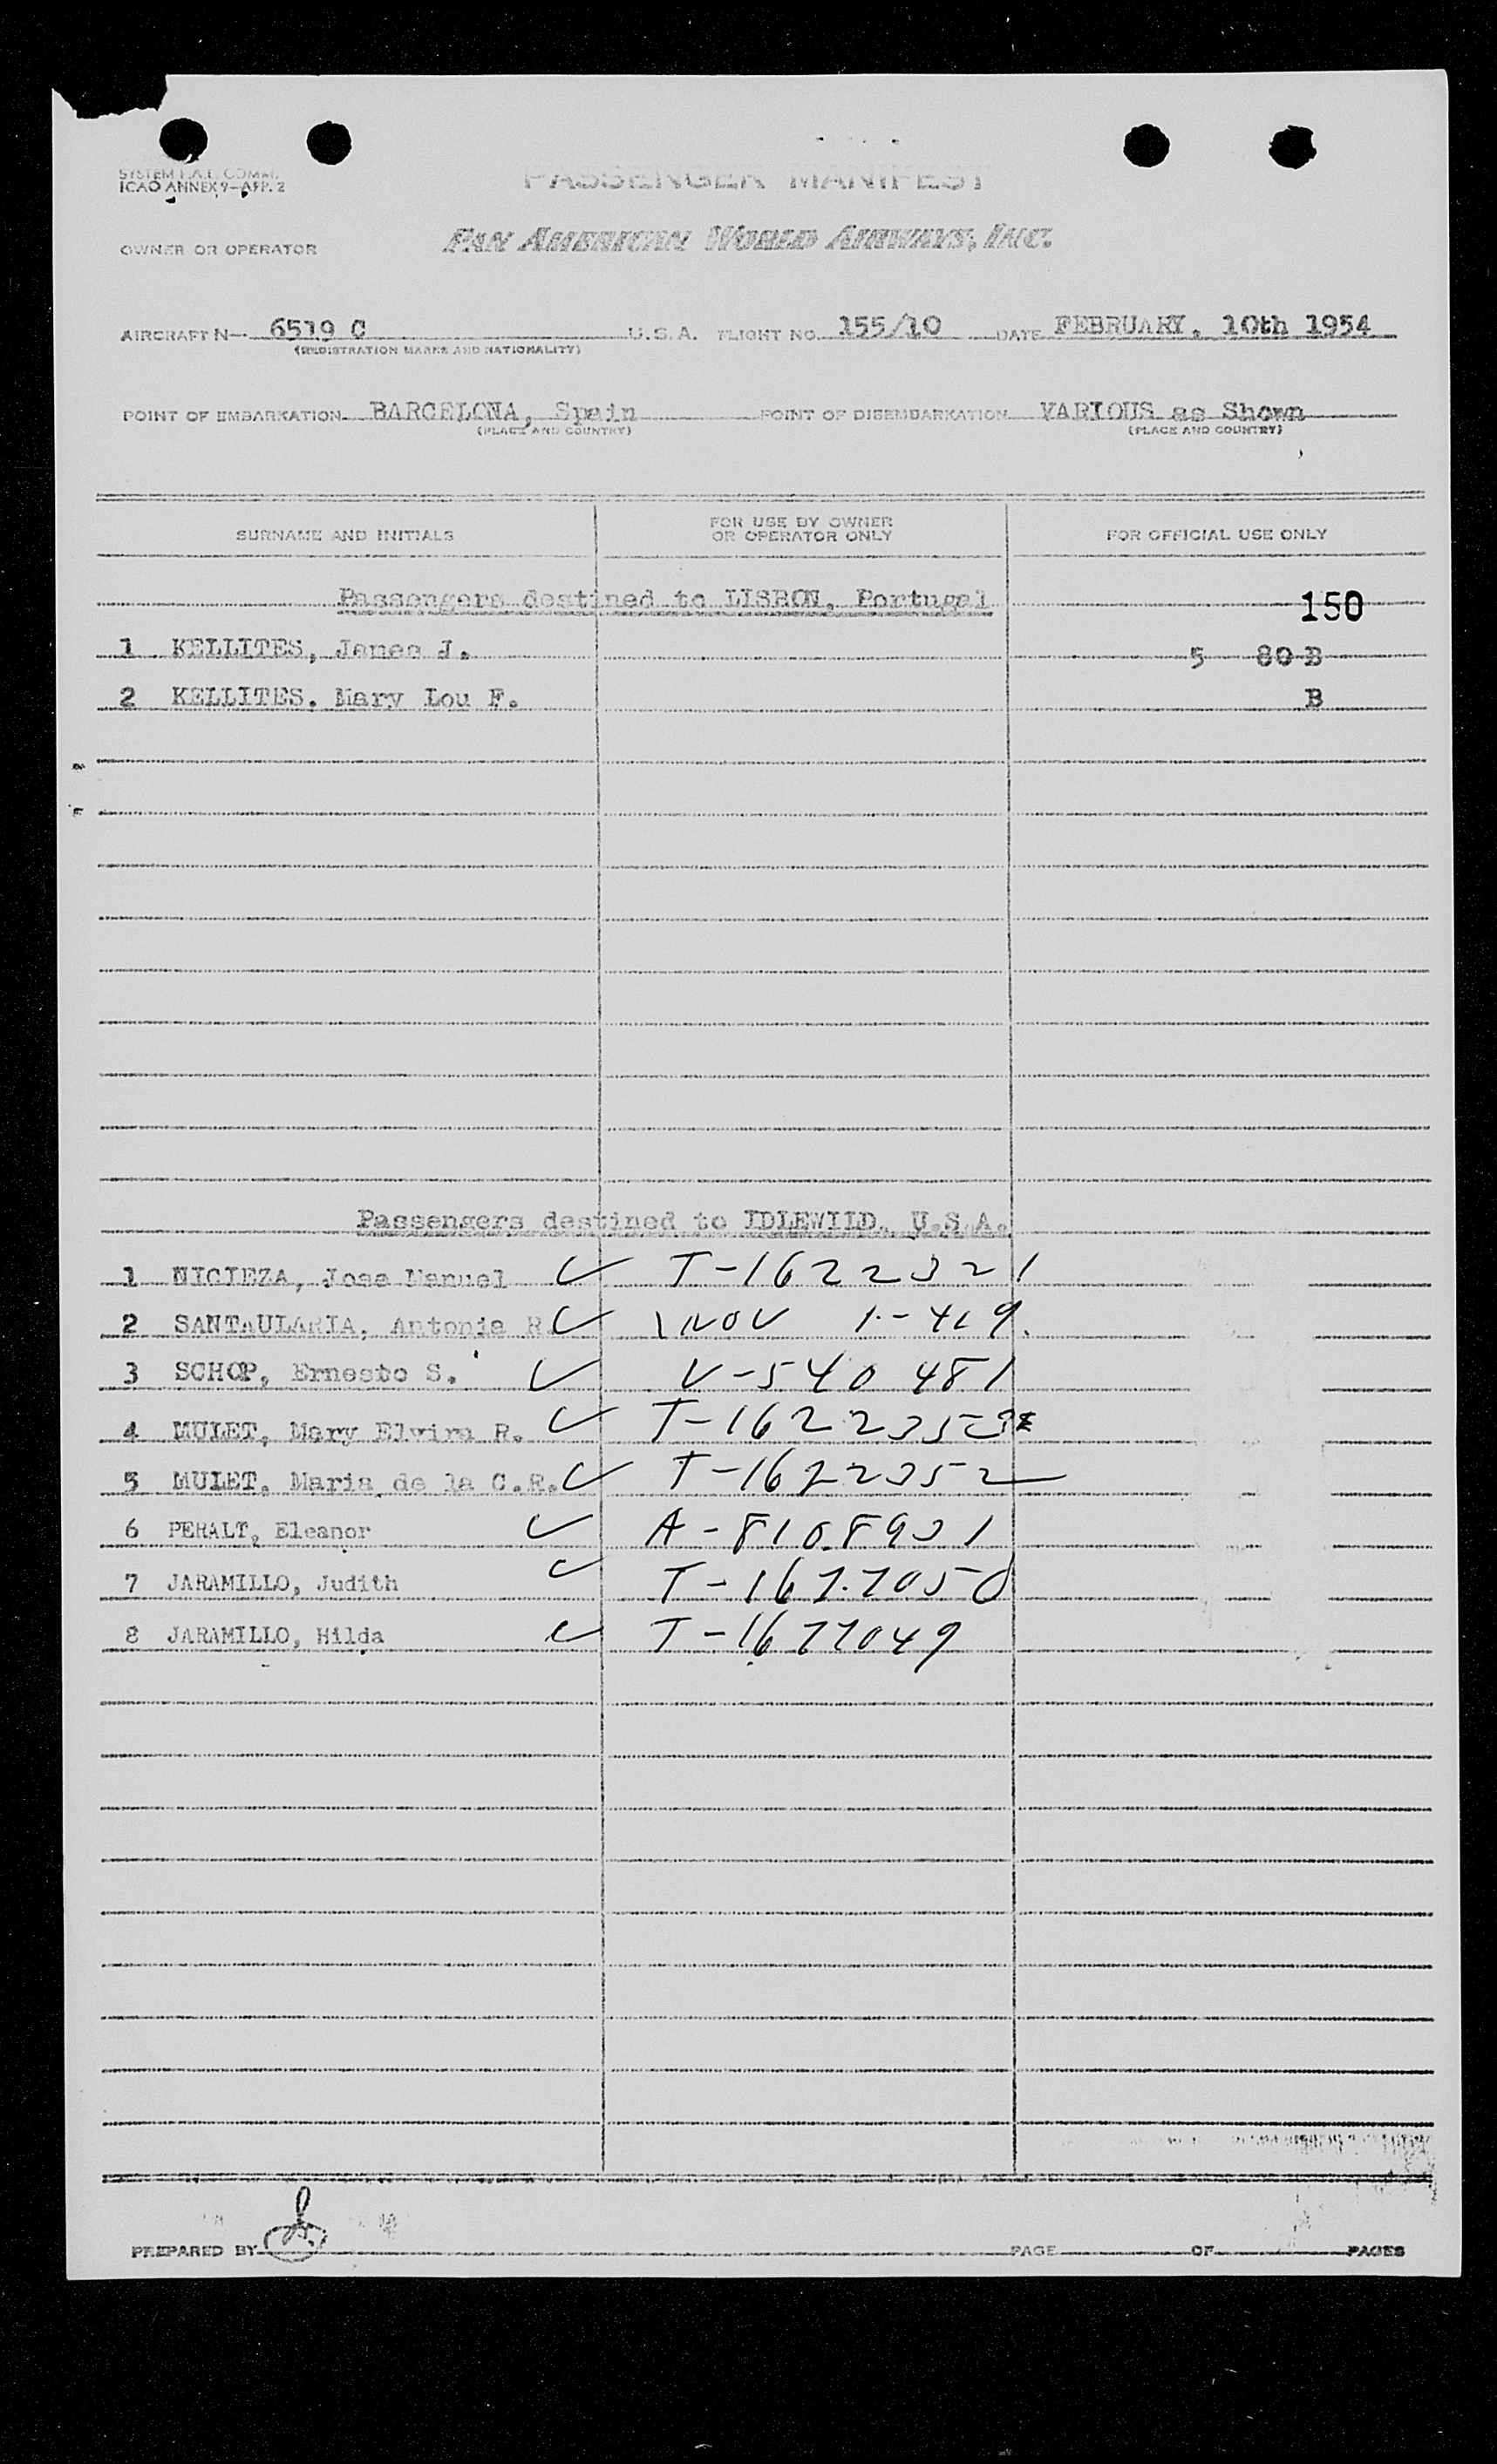 SYSTEM F.A.L. COMM.
ICAO ANNEX 9—APP. 2
PASSENGER MANIFEST
OWNER OR OPERATOR PAN AMERICAN WORLD AIRWAYS, INC.
AIRCRAFT N— 6519 C U.S.A. FLIGHT NO. 155/10 DATE FEBRUARY, 10th 1954
(REGISTRATION MARKS AND NATIONALITY)
POINT OF EMBARKATION BARCELONA, Spain POINT OF DISEMBARKATION VARIOUS as Shown
(PLACE AND COUNTRY) (PLACE AND COUNTRY)
SURNAME AND INITIALS FOR USE BY OWNER OR OPERATOR ONLY FOR OFFICIAL USE ONLY
Passengers destined to LISBON, Portugal 150
1 KELLITES, James J. 5 80 B
2 KELLITES, Mary Lou F. B
Passengers destined to IDLEWILD, U.S.A.
1 NICIEZA, Jose Manuel ✓ T-1622321
2 SANTAULARIA, Antonia R. ✓
3 SCHOP, Ernesto S. ✓ V-540 481
4 MULET, Mary Elvira R. ✓
5 MULET, Maria de la C.R. ✓ T-1622352
6 PERALT, Eleanor ✓ A-8108931
7 JARAMILLO, Judith ✓ T-1677050
8 JARAMILLO, Hilda ✓ T-1677049
PREPARED BY PAGE OF PAGES